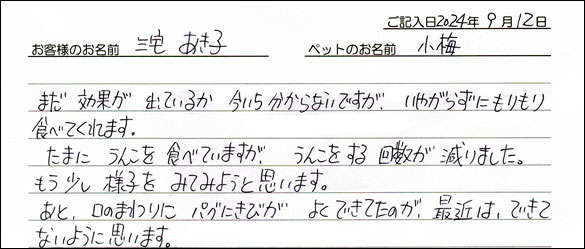 ご記入日2024年9月12日
お客様のお名前 三宅 あき子 ペットのお名前 小梅
まだ 効果が 出ているか 今いち分からないですが、いやがらずにもりもり
食べてくれます。
たまに うんこを 食べていますが、うんこをする 回数が 減りました。
もう少し 様子を みてみようと思います。
あと、口のまわりに パグにきびが よくできてたのが、最近は、できて
ないように思います。